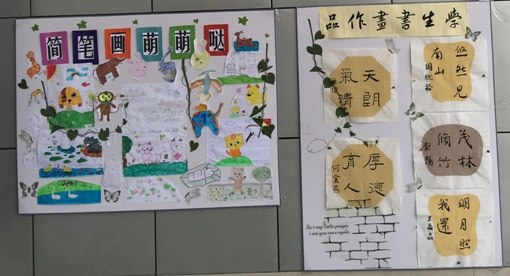 简笔画萌萌哒
學生書畫作品
悠然見
南山
天朗
氣清
茂林
脩竹
厚德
育人
明月照
我還